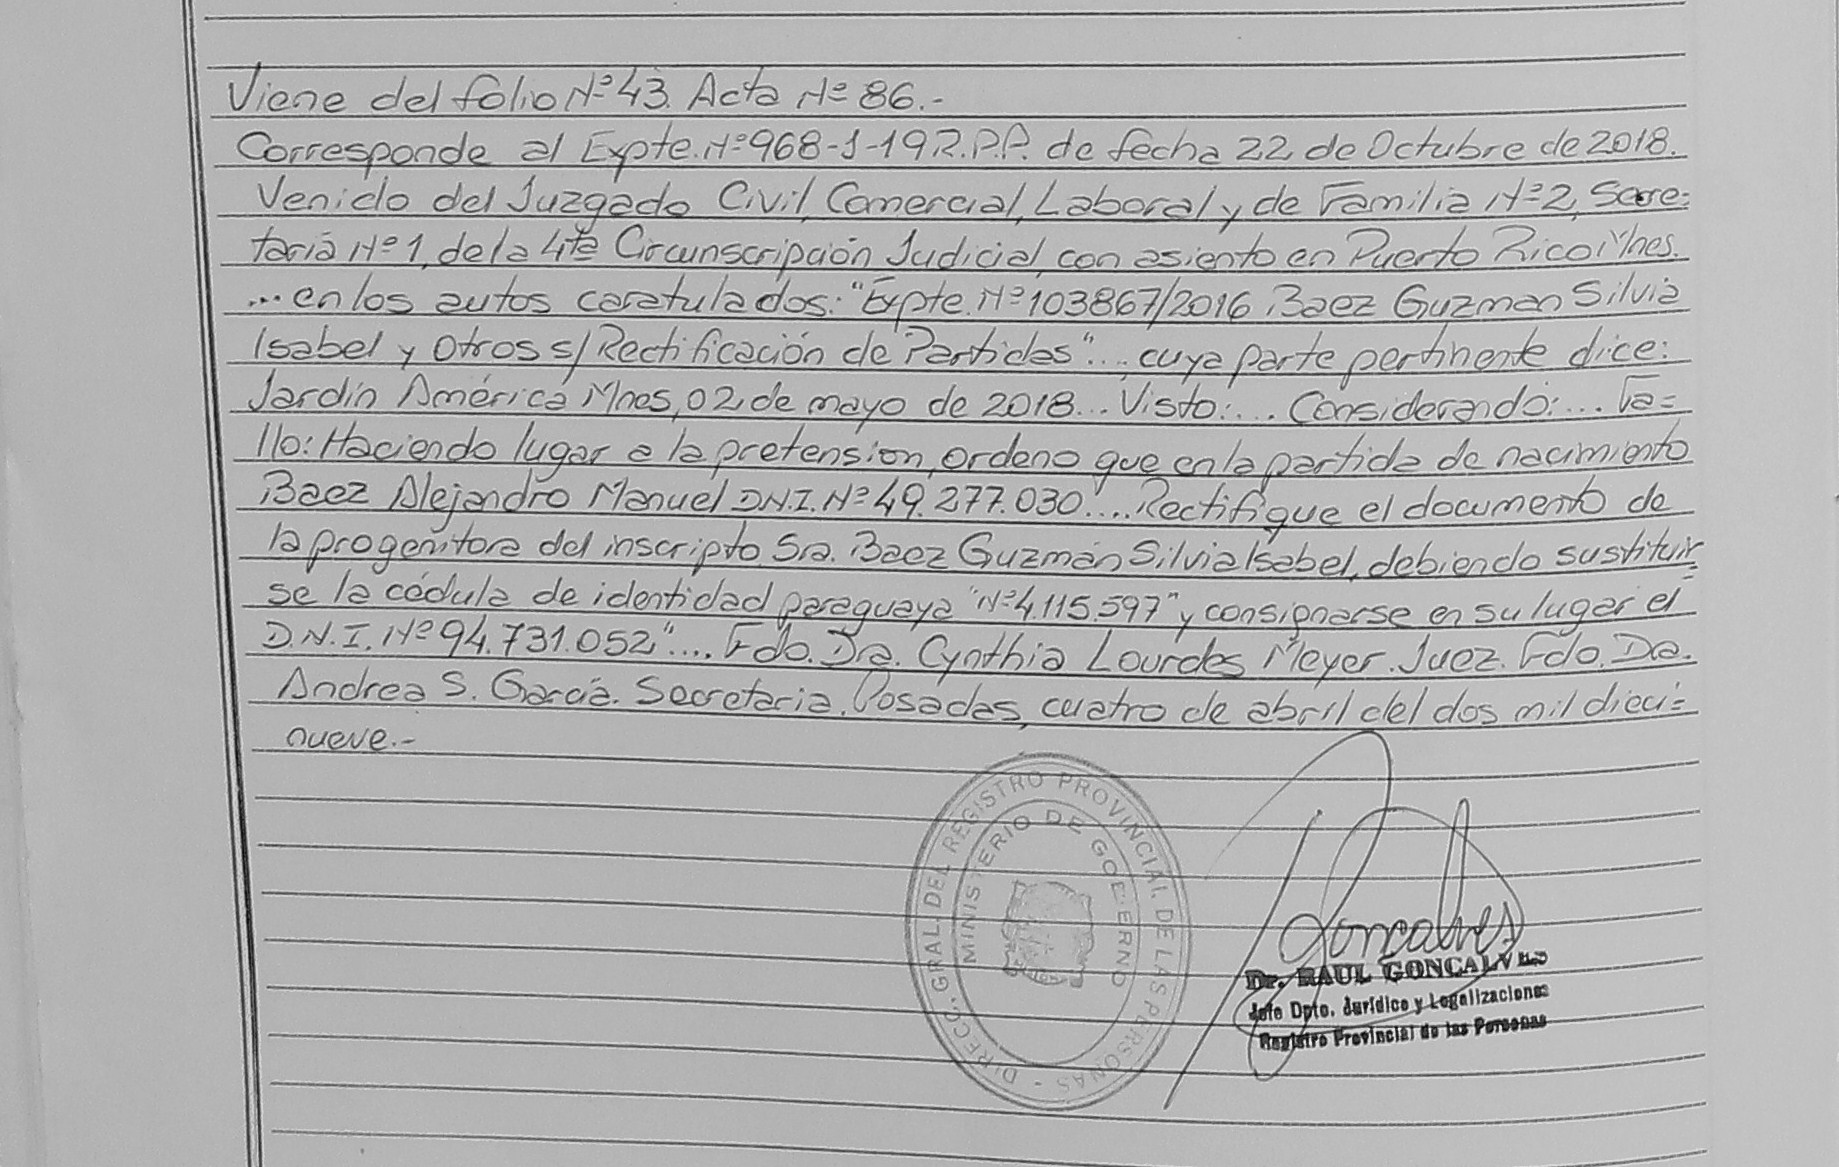 Viene del folio Nº 43. Acta Nº 86.-
Corresponde al Expte. Nº 968-J-19 R.P.P. de fecha 22 de Octubre de 2018.
Venido del Juzgado Civil, Comercial, Laboral y de Familia Nº 2, Secre=
taria Nº 1, de la 4ta Circunscripción Judicial, con asiento en Puerto Rico Mnes.
... en los autos caratulados: "Expte. Nº 103867/2016 Baez Guzman Silvia
Isabel y Otros s/ Rectificación de Partidas"..., cuya parte pertinente dice:
Jardín América Mnes, 02 de mayo de 2018... Visto:.... Considerando:... Fa=
llo: Haciendo lugar a la pretension, ordeno que en la partida de nacimiento
Baez Alejandro Manuel D.N.I. Nº 49.277.030.... Rectifique el documento de
la progenitora del inscripto, Sra. Baez Guzmán Silvia Isabel, debiendo sustituir=
se la cédula de identidad paraguaya "Nº 4.115.597" y consignarse en su lugar el
D.N.I. Nº 94.731.052".... Fdo. Dra. Cynthia Lourdes Meyer. Juez. Fdo. Dra.
Andrea S. García. Secretaria. Posadas, cuatro de abril del dos mil dieci=
nueve.-
DIRECC. GRAL. DEL REGISTRO PROVINCIAL DE LAS PERSONAS -
MINISTERIO DE GOBIERNO
Goncalves
Dr. RAUL GONCALVES
Jefe Dpto. Jurídico y Legalizaciones
Registro Provincial de las Personas